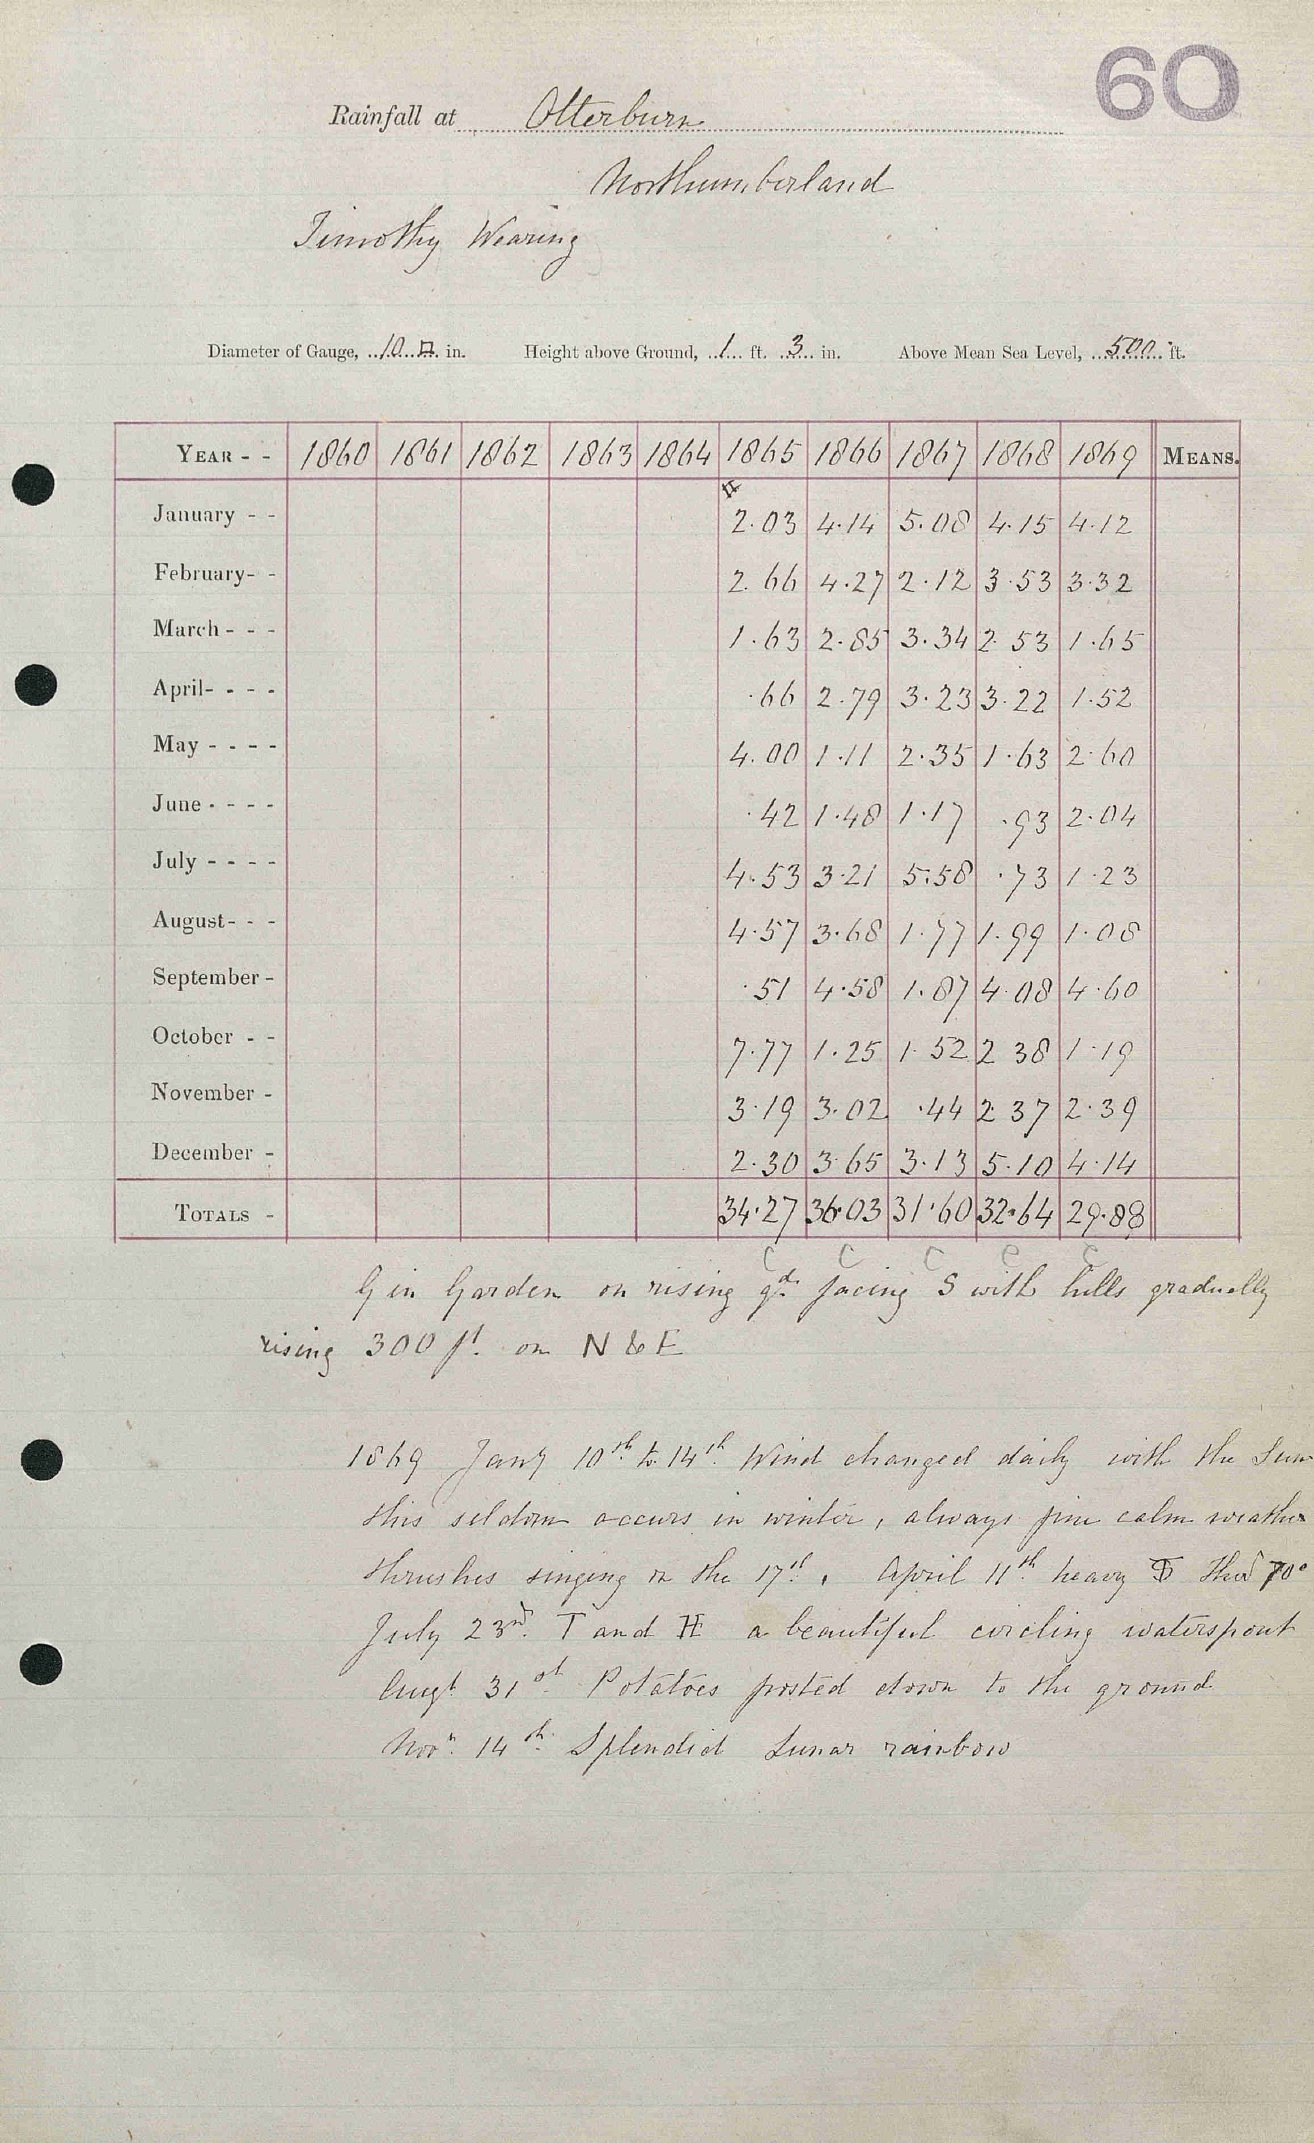 60
Rainfall at Otterburn
Northumberland
Timothy Wearing
Diameter of Gauge, 10 □ in. Height above Ground, 1 ft. 3 in. Above Mean Sea Level, 500 ft.
YEAR - - 1860 1861 1862 1863 1864 1865 1866 1867 1868 1869 MEANS.
January - - 2.03 4.14 5.08 4.15 4.12
February- - 2.66 4.27 2.12 3.53 3.32
March - - - 1.63 2.85 3.34 2.53 1.65
April- - - - .66 2.79 3.23 3.22 1.52
May - - - - 4.00 1.11 2.35 1.63 2.60
June - - - - .42 1.48 1.17 .93 2.04
July - - - - 4.53 3.21 5.58 .73 1.23
August- - - 4.57 3.68 1.77 1.99 1.08
September - .51 4.58 1.87 4.08 4.60
October - - 7.77 1.25 1.52 2 38 1.19
November - 3.19 3.02 .44 2.37 2.39
December - 2.30 3.65 3.13 5.10 4.14
TOTALS - 34.27 36.03 31.60 32.64 29.88
C C C C C
G in Garden on rising gd. facing S with hills gradually
rising 300 ft. on N & E
1869 Jany 10th to 14th Wind changed daily with the Sun
this seldom occurs in winter, always fine calm weather
thrushes singing on the 17th. April 11th heavy T Ther 70°
July 23rd. T and H a beautiful circling waterspout
Augt 31st Potatoes frosted down to the ground
Novr. 14th Splendid Lunar rainbow